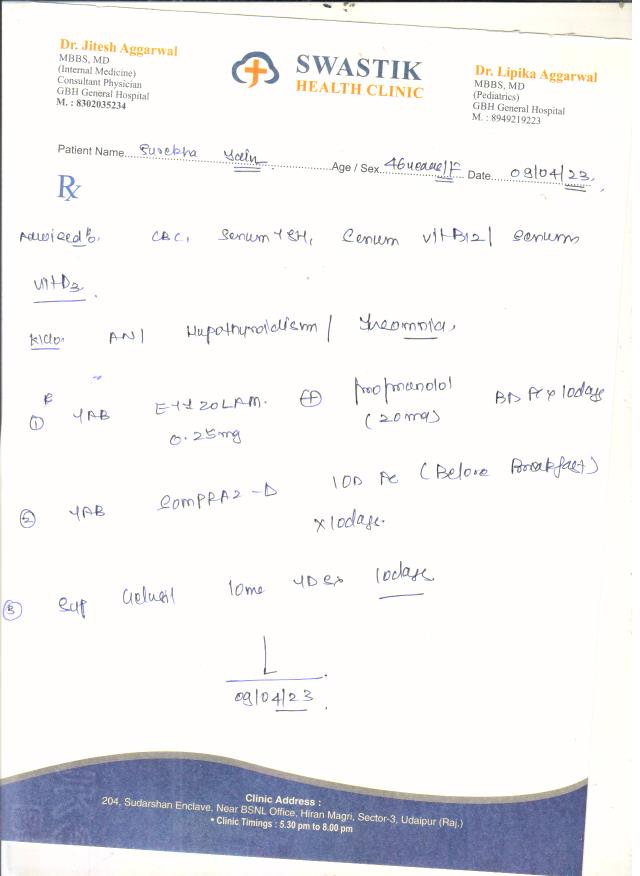 Dr. Jitesh Aggarwal
MBBS, MD
(Internal Medicine)
Consultant Physician
GBH General Hospital
M. : 8302035234
SWASTIK
HEALTH CLINIC
Dr. Lipika Aggarwal
MBBS, MD
(Pediatrics)
GBH General Hospital
M.: 8949219223
Patient Name Surekha Jain Age / Sex 46 years/F Date 09/04/23
Rx
Adviced CBC, Serum TSH, Serum vitB12/ serum
vitD3
K/C/O AN/ Hypothyroidism/ Insomnia,
① TAB ETIZOLAM. ⊕ propranolol BD x 10days
0.25mg (20mg)
② TAB COMPRAZ-D 1OD AC (Before Breakfast)
x10days.
③ Syp Gelusil 10ml TDS x 10days
09/04/23
Clinic Address :
204, Sudarshan Enclave, Near BSNL Office, Hiran Magri, Sector-3, Udaipur (Raj.)
• Clinic Timings : 5.30 pm to 8.00 pm